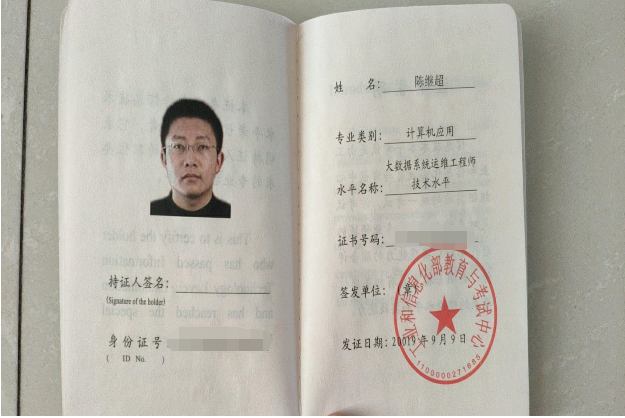 持证人签名:
(Signature of the holder)
身份证号
( ID No. )
姓 名: 陈继超
专业类别: 计算机应用
大数据系统运维工程师
水平名称: 技术水平
证书号码:
签发单位: (章)
发证日期: 20019年9月9日
工业和信息化部教育与考试中心
1100000271885
This is to certify the holder
who has passed Information
and has reached the special